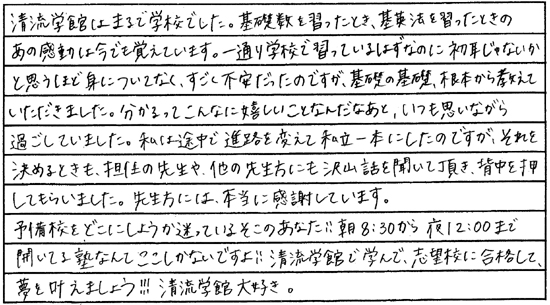 清流学館はまるで学校でした。基礎数を習ったとき、基英法を習ったときの
あの感動は今でも覚えています。一通り学校で習っているはずなのに初耳じゃないか
と思うほど身についてなく、すごく不安だったのですが、基礎の基礎、根本から教えて
いただきました。分かるってこんなに嬉しいことなんだなあと、いつも思いながら
過ごしていました。私は途中で進路を変えて私立一本にしたのですが、それを
決めるときも、担任の先生や、他の先生方にも沢山話を聞いて頂き、背中を押
してもらいました。先生方には、本当に感謝しています。
予備校をどこにしようか迷っているそこのあなた!!朝8:30から夜12:00まで
開いてる塾なんてここしかないですよ!!清流学館で学んで、志望校に合格して、
夢を叶えましょう!!!清流学館大好き。